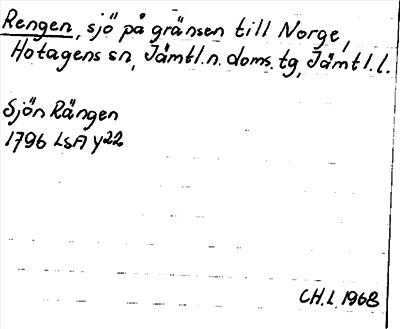 Rengen, sjö på gränsen till Norge,
Hotagens sn, Jämtl.n.doms.tg, Jämtl.l.
Sjön Rängen
1796 LSA Y22
CH.L 1968